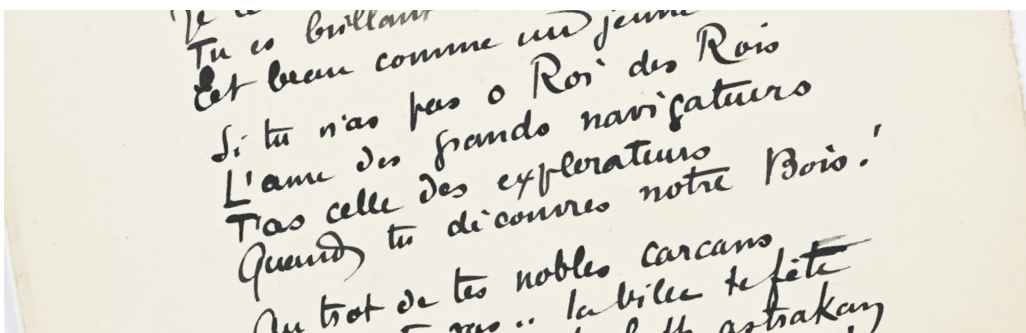 Je
Tu es brillant
Et beau comme un jeune
Si tu n'as pas o Roi des Rois
L'ame des grands navigateurs
T'as celle des explorateurs
Quand tu découvres notre Bois !
Au trot de tes nobles carcans
vas .. la te fête
astrakan